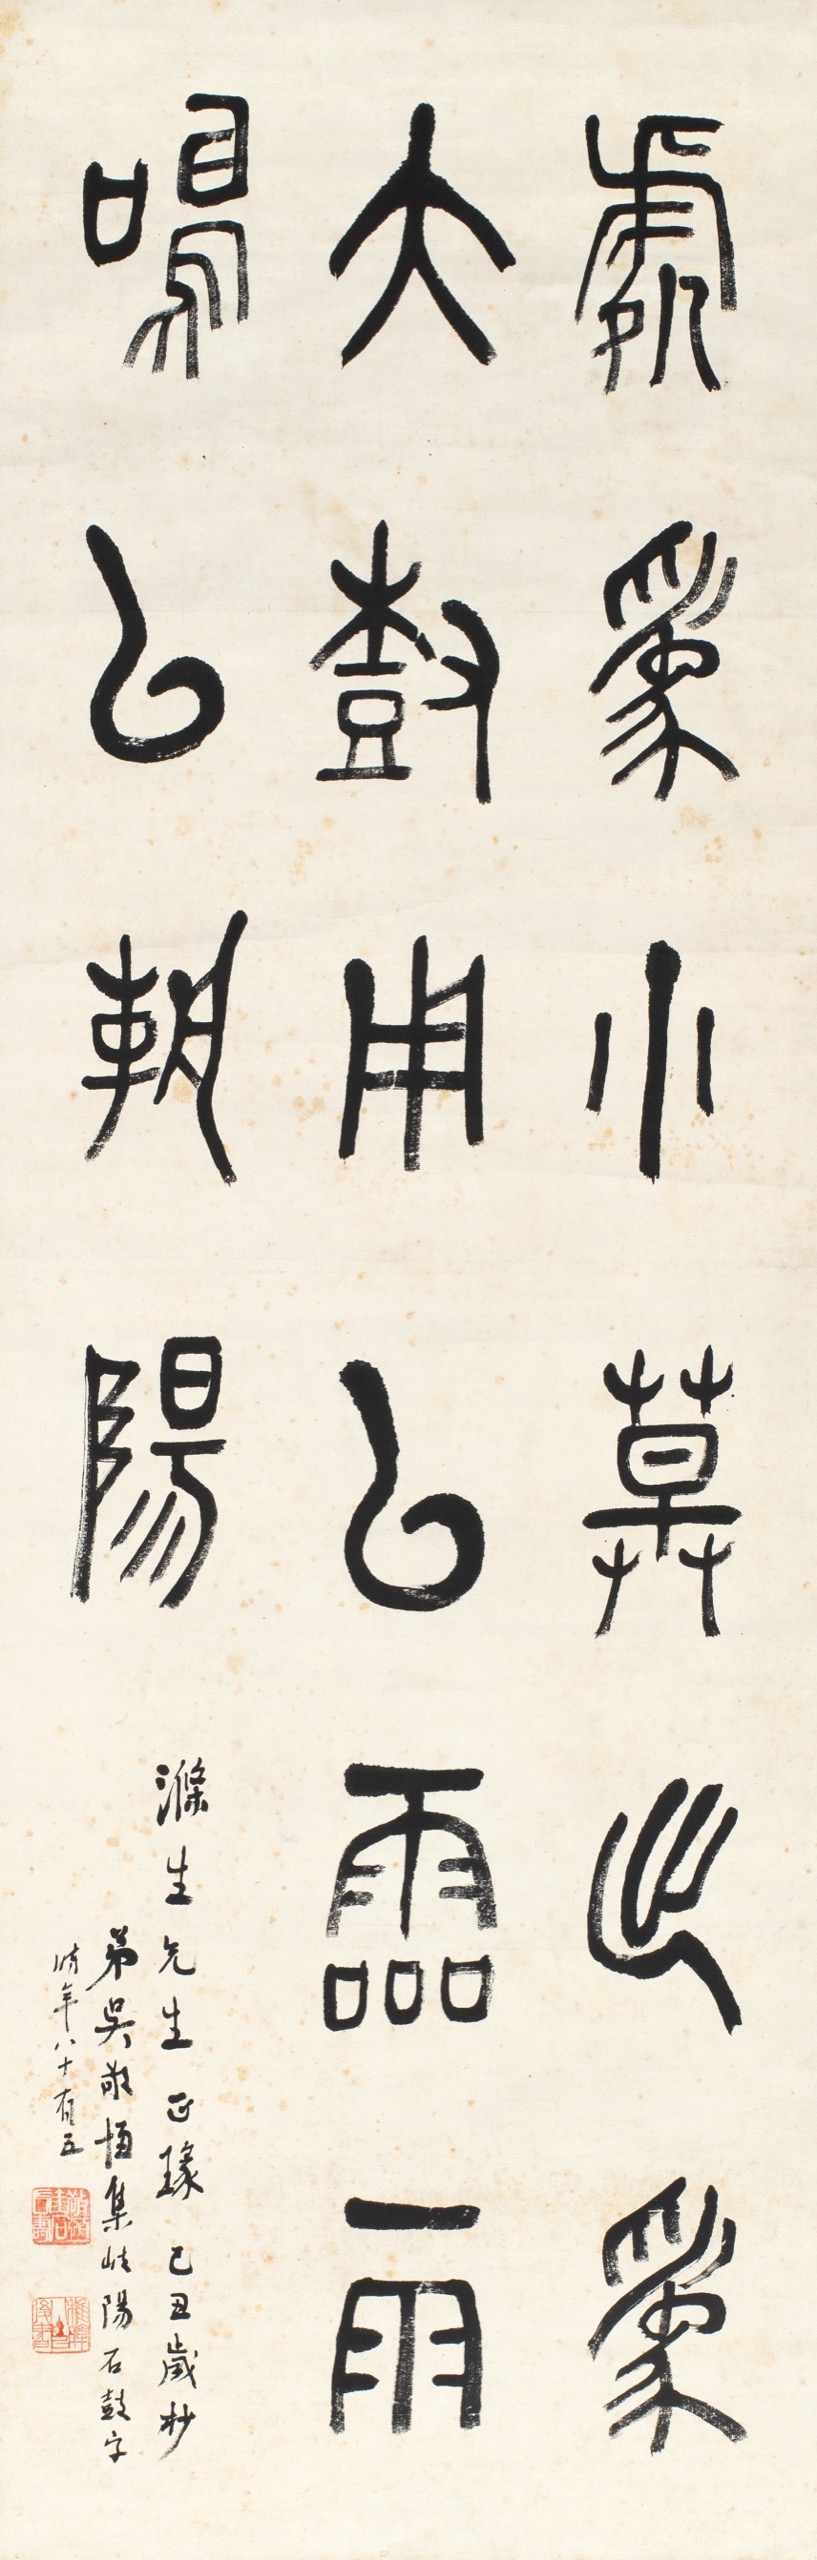 處為小草出為
大樹用以霝雨
鳴以朝陽
滌生先生正瑑己丑歲杪
弟吳敬恆集岐陽石鼓字
時年八十有五